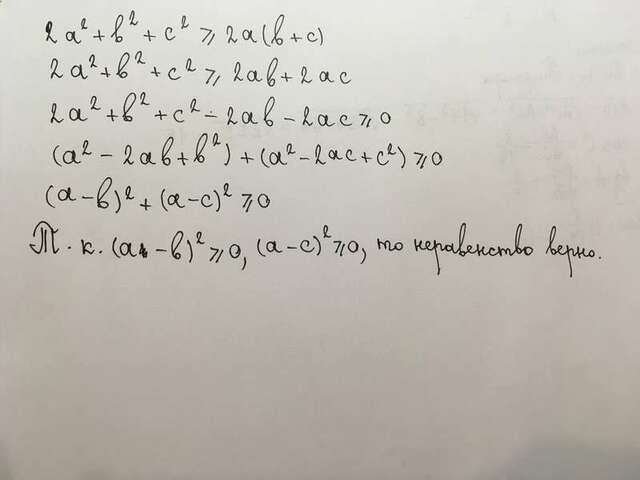 2a² + b² + c² ⩾ 2a(b+c)
2a² + b² + c² ⩾ 2ab + 2ac
2a² + b² + c² - 2ab - 2ac ⩾ 0
(a² - 2ab + b²) + (a² - 2ac + c²) ⩾ 0
(a - b)² + (a - c)² ⩾ 0
Т. к. (a - b)² ⩾ 0, (a - c)² ⩾ 0, то неравенство верно.